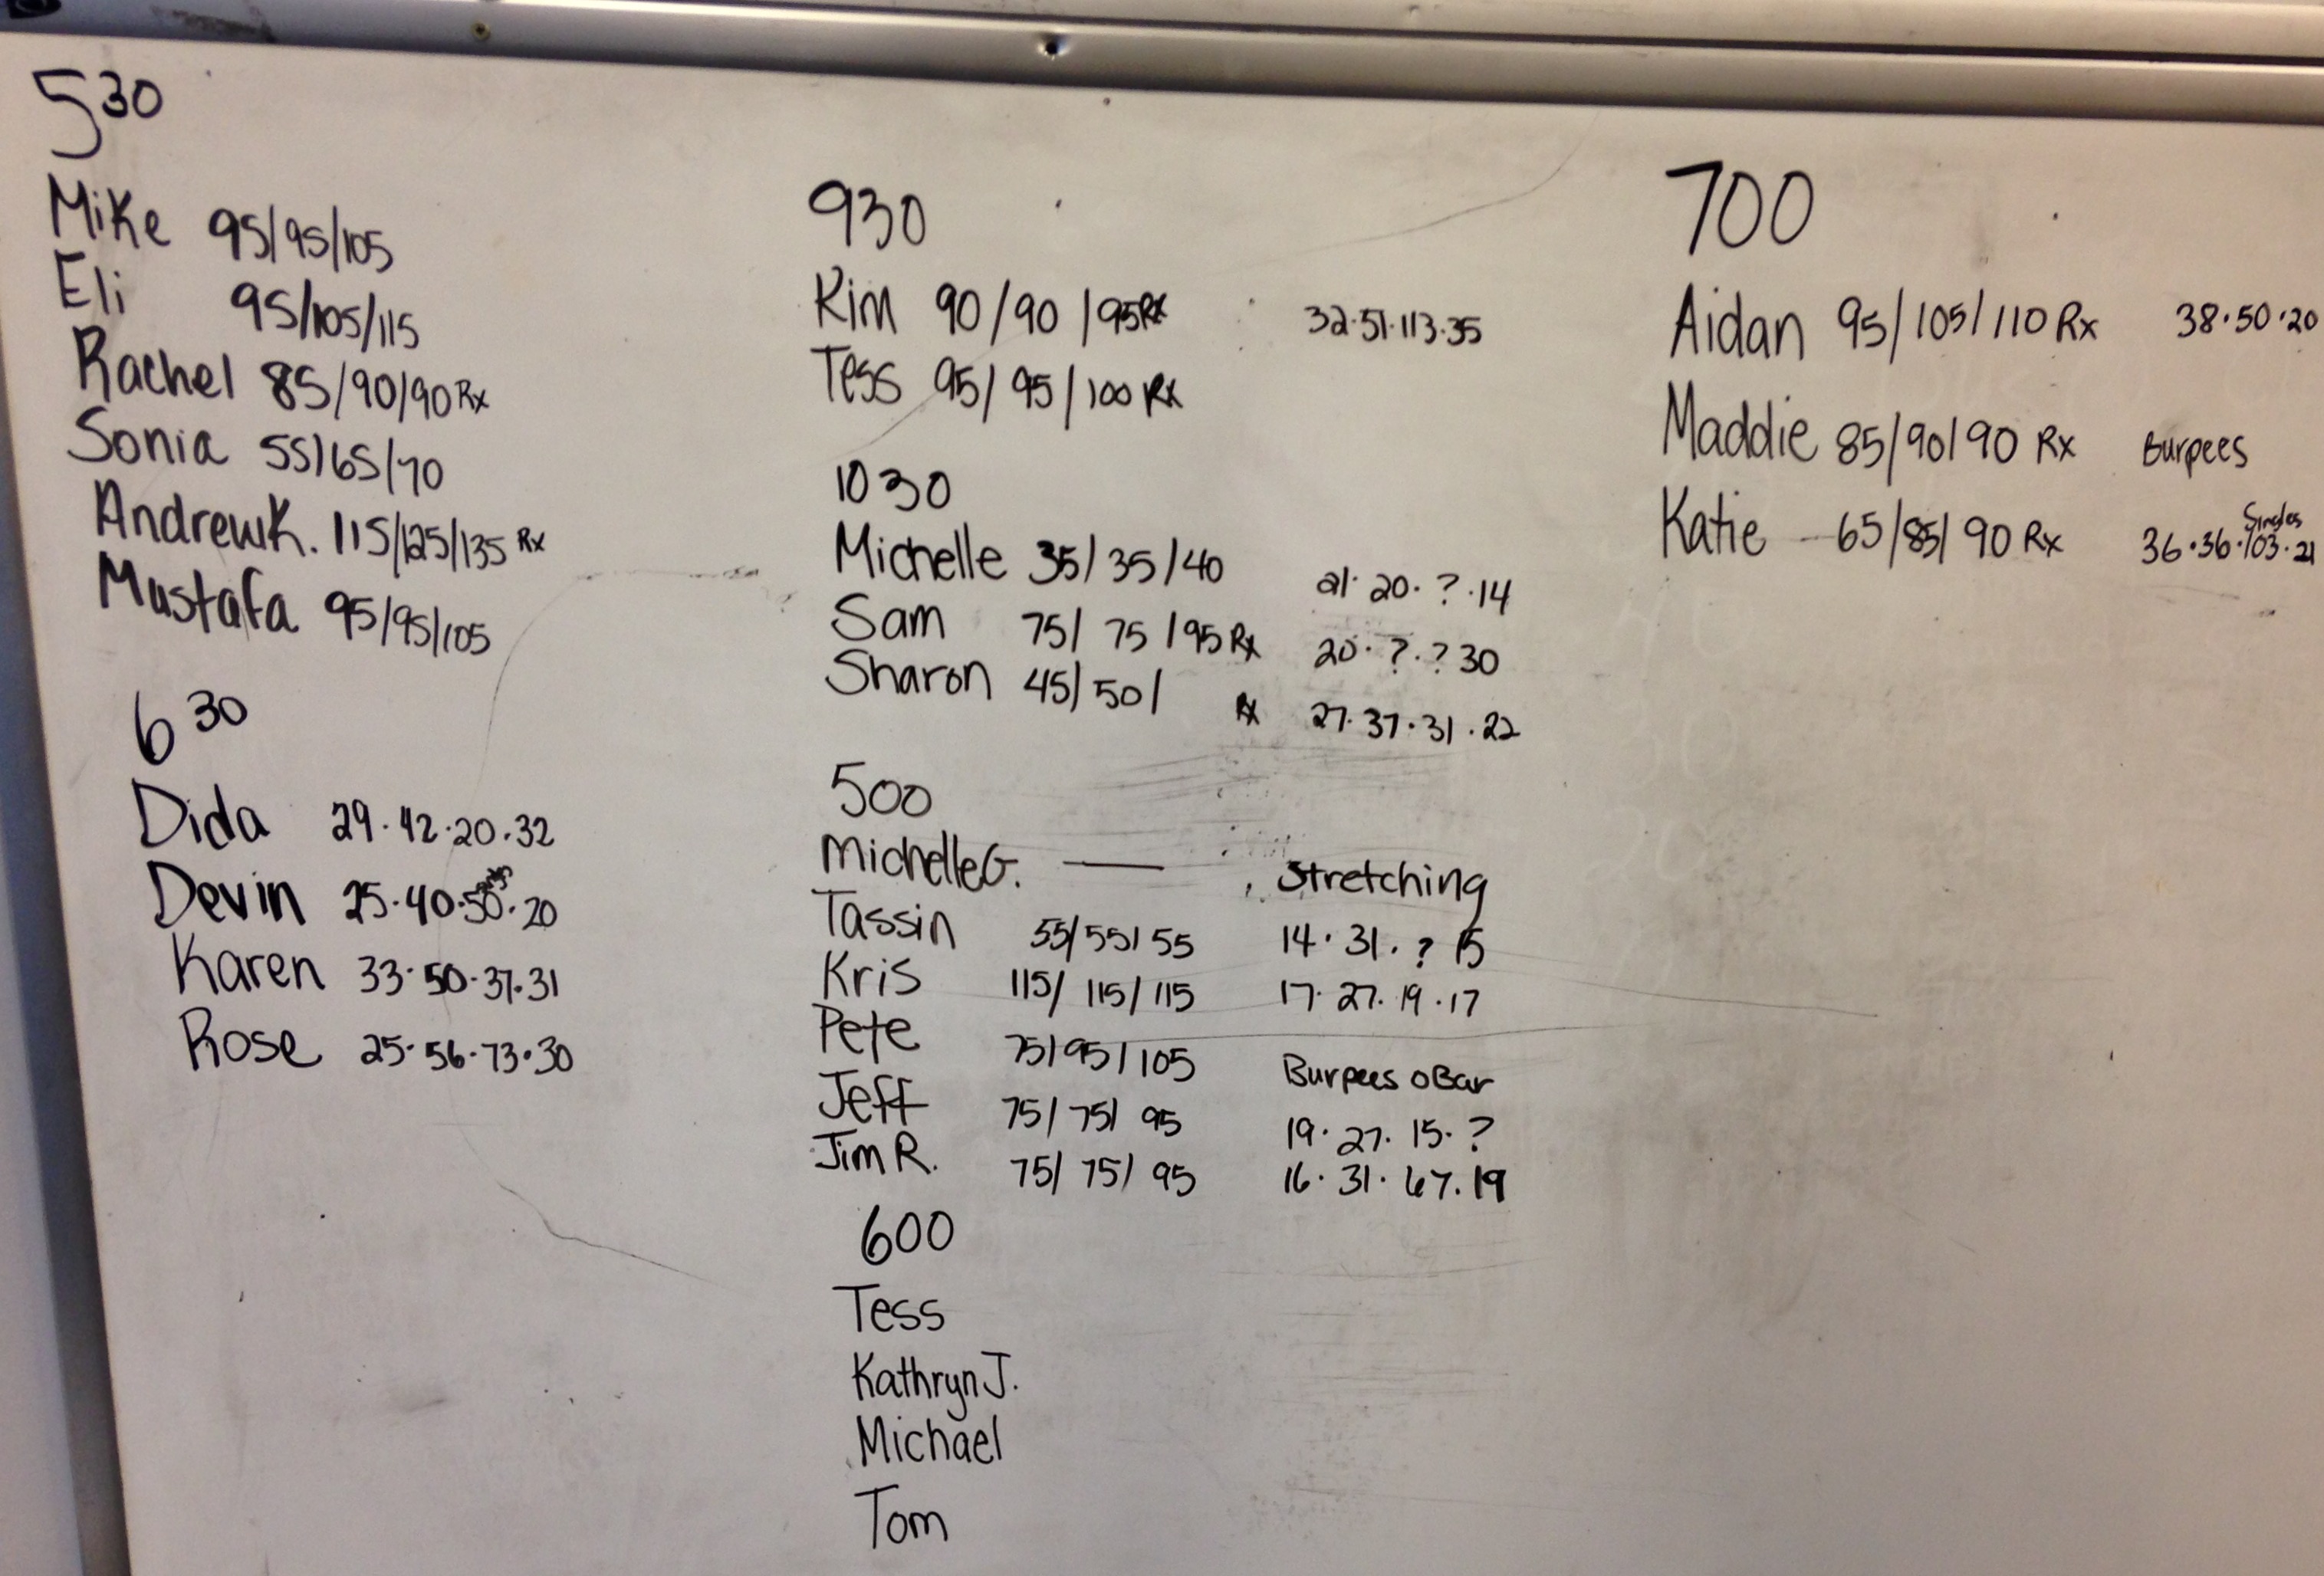 530
Mike 95/95/105
Eli 95/105/115
Rachel 85/90/90 Rx
Sonia 55/65/70
Andrew K. 115/125/135 Rx
Mustafa 95/95/105
630
Dida 29·42·20·32
Devin 25·40·50·20
Karen 33·50·37·31
Rose 25·56·73·30
930
Kim 90/90/95 Rx 32·51·113·35
Tess 95/95/100 Rx
1030
Michelle 35/35/40 21·20·?·14
Sam 75/75/95 Rx 20·?·? 30
Sharon 45/50/ Rx 27·37·31·22
500
Michelle G. — Stretching
Tassin 55/55/55 14·31·? 15
Kris 115/115/115 17·27·19·17
Pete 75/95/105 Burpees oBar
Jeff 75/75/95 19·27·15·?
Jim R. 75/75/95 16·31·67·19
600
Tess
Kathryn J.
Michael
Tom
700
Aidan 95/105/110 Rx 38·50·20
Maddie 85/90/90 Rx Burpees
Singles
Katie 65/85/90 Rx 36·36·103·21